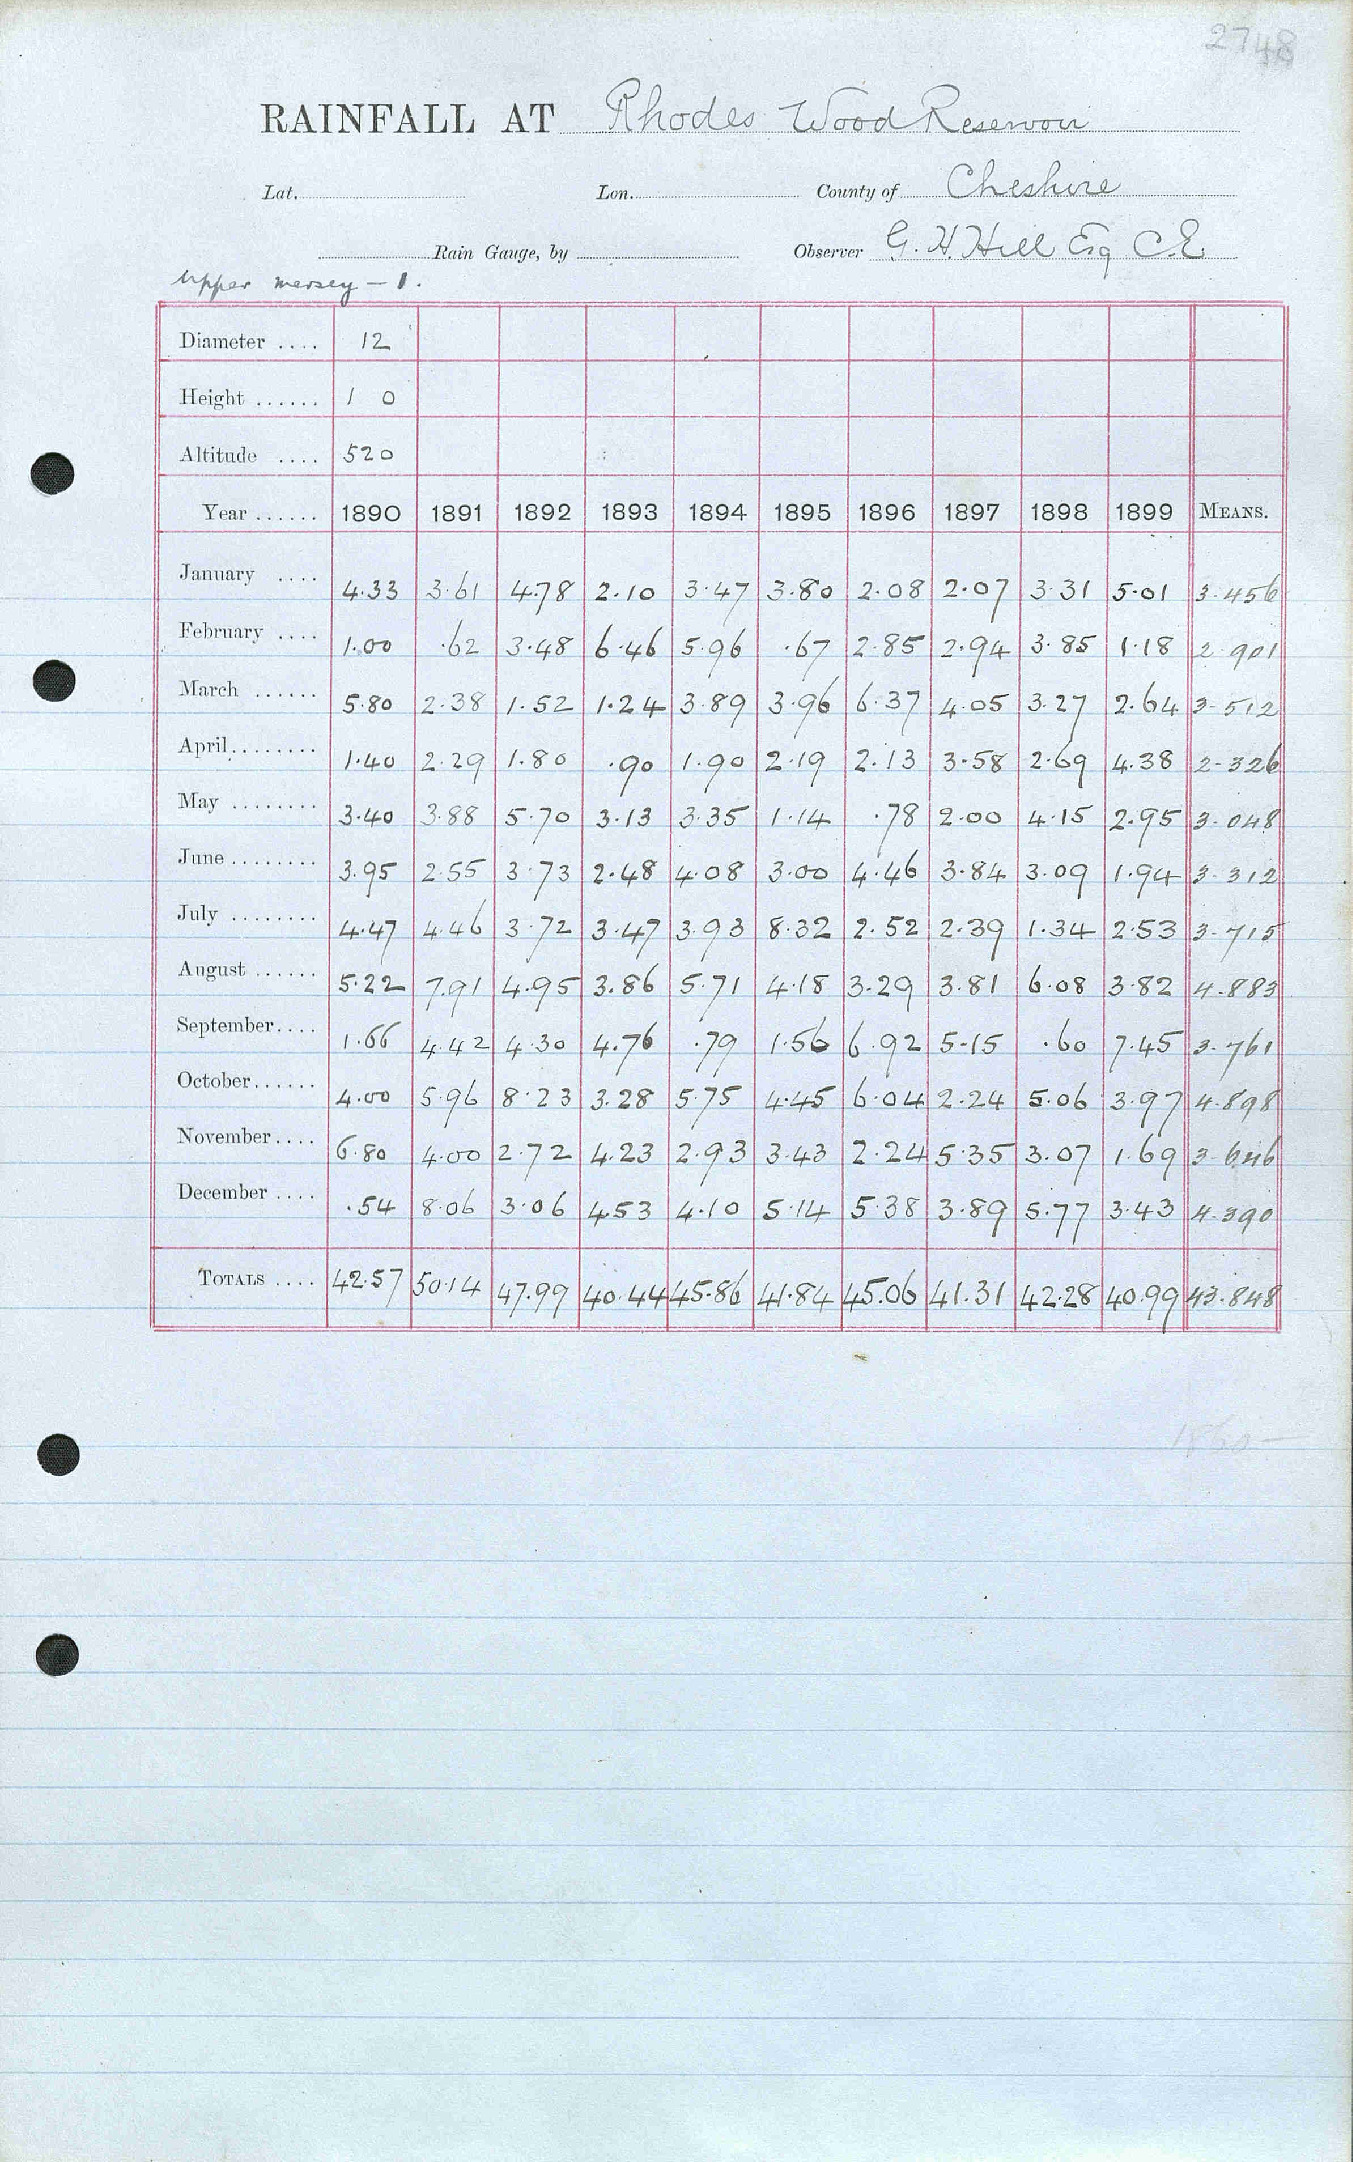 2748
RAINFALL AT Rhodes Wood Reservoir
Lat. Lon. County of Cheshire
Rain Gauge, by Observer G. H. Hill Esq C.E.
Upper Mersey - 1.
Diameter .... 12
Height ...... 1 0
Altitude .... 520
Year ...... 1890 1891 1892 1893 1894 1895 1896 1897 1898 1899 MEANS.
January .... 4.33 3.61 4.78 2.10 3.47 3.80 2.08 2.07 3.31 5.01 3.456
February .... 1.00 .62 3.48 6.46 5.96 .67 2.85 2.94 3.85 1.18 2.901
March ...... 5.80 2.38 1.52 1.24 3.89 3.96 6.37 4.05 3.27 2.64 3.512
April ........ 1.40 2.29 1.80 .90 1.90 2.19 2.13 3.58 2.69 4.38 2.326
May ........ 3.40 3.88 5.70 3.13 3.35 1.14 .78 2.00 4.15 2.95 3.048
June ........ 3.95 2.55 3.73 2.48 4.08 3.00 4.46 3.84 3.09 1.94 3.312
July ........ 4.47 4.46 3.72 3.47 3.93 8.32 2.52 2.39 1.34 2.53 3.715
August ...... 5.22 7.91 4.95 3.86 5.71 4.18 3.29 3.81 6.08 3.82 4.883
September .... 1.66 4.42 4.30 4.76 .79 1.56 6.92 5.15 .60 7.45 3.761
October ...... 4.00 5.96 8.23 3.28 5.75 4.45 6.04 2.24 5.06 3.97 4.898
November .... 6.80 4.00 2.72 4.23 2.93 3.43 2.24 5.35 3.07 1.69 3.646
December .... .54 8.06 3.06 4.53 4.10 5.14 5.38 3.89 5.77 3.43 4.390
TOTALS .... 42.57 50.14 47.99 40.44 45.86 41.84 45.06 41.31 42.28 40.99 43.848